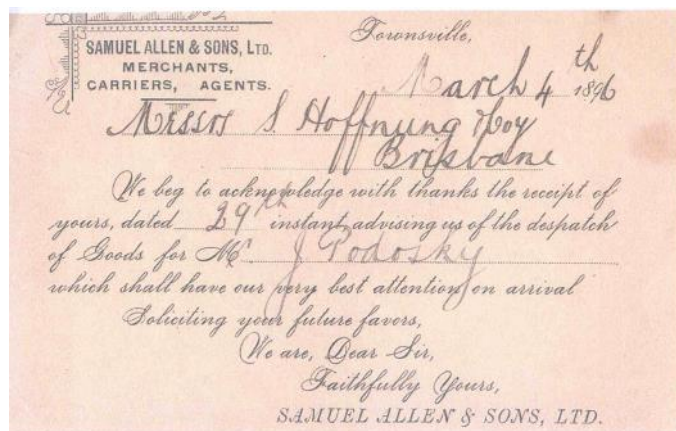 SAMUEL ALLEN & SONS, LTD.
MERCHANTS,
CARRIERS, AGENTS.
Townsville,
March 4th 1896
Messrs S. Hoffnung & Coy
Brisbane
We beg to acknowledge with thanks the receipt of
yours, dated 29th instant advising us of the despatch
of Goods for Mr. J Podosky
which shall have our very best attention on arrival
Soliciting your future favors,
We are, Dear Sir,
Faithfully Yours,
SAMUEL ALLEN & SONS, LTD.